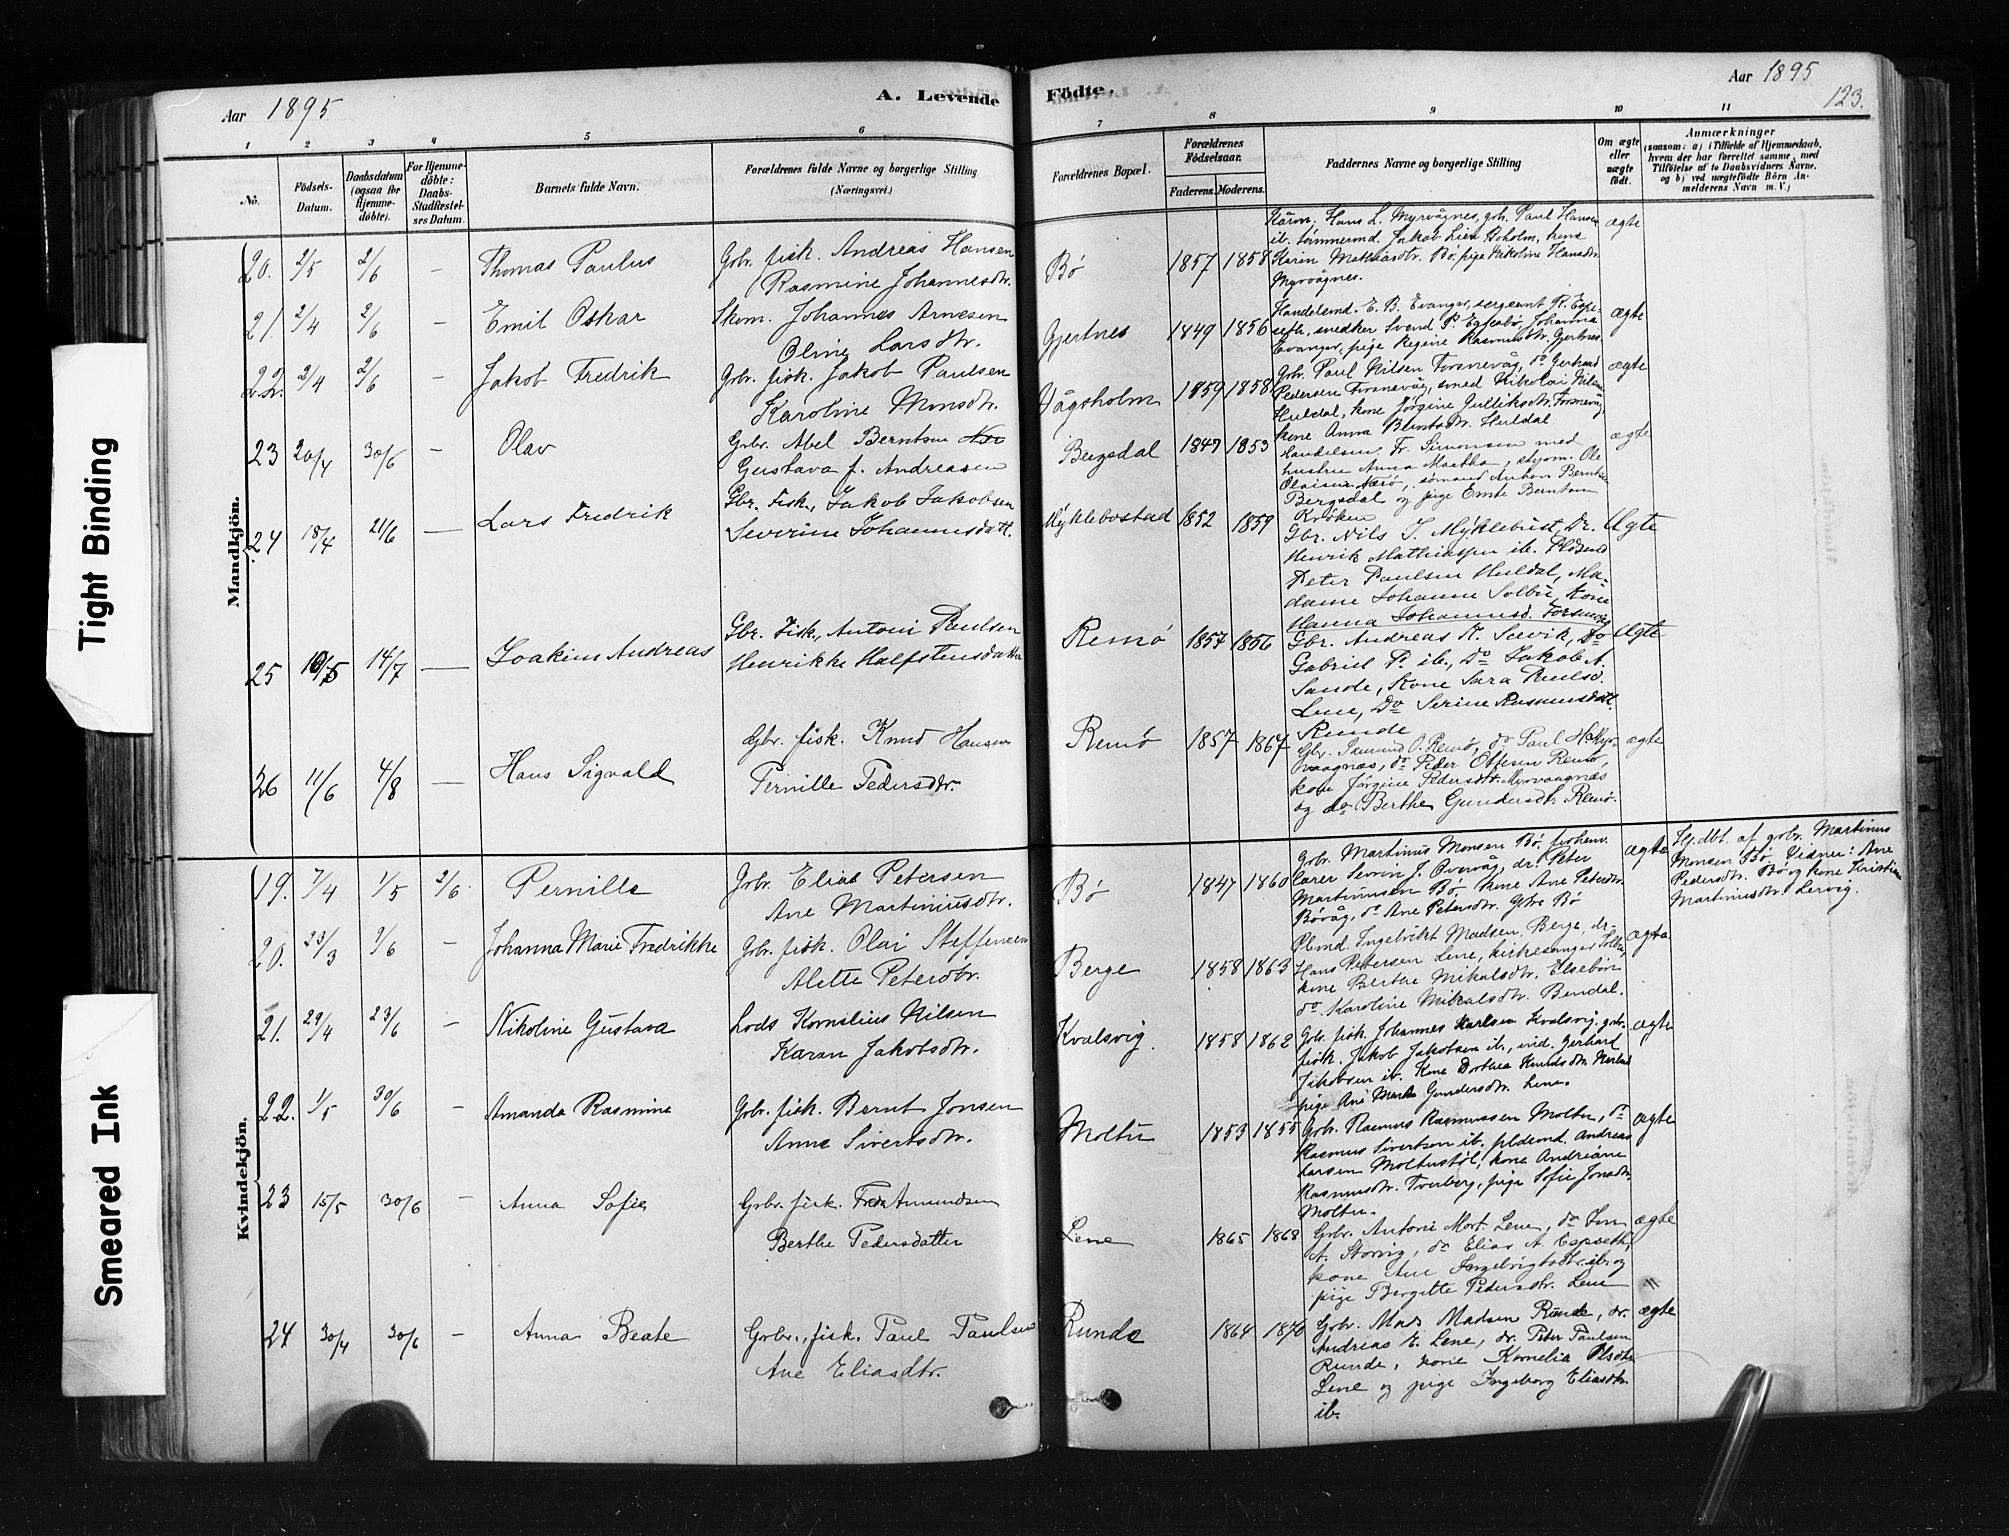 Aar 1895
A. Levende
Fødte.
Aar 1895
123.
1 2 3 4 5 6 7 8 9 10 11
No.
Födsels-
Datum.
Daabsdatum
(ogsaa for
Hjemme-
döbte).
For Hjemme-
döbte:
Daabs-
Stadfæstel-
ses Datum.
Barnets fulde Navn.
Forældrenes fulde Navne og borgerlige Stilling
(Næringsvei.)
Forældrenes Bopæl.
Forældrenes
Födselsaar.
Faderens. Moderens.
Faddernes Navne og borgerlige Stilling
Om ægte
eller
uægte
født.
Anmærkninger
(saasom: a) i Tilfælde af Hjemmedaab,
hvem der har forrettet samme, med
Tilføielse af to Daabsvidners Navne.
og b) ved uægtefödte Börn An-
melderens Navn m. V.)
Mandkjön.
20. 2/5 2/6 — Thomas Paulus
Gbr. fisk. Andreas Hansen
Rasmine Johannesdtr.
Bø 1857 1858
Kårm. Hans L. Myrvågnes, gbr. Paul Hansen
ib. tømmermd. Jakob Lien Boholm, kone
Karin Mathiasdtr. Bø, pige Nikoline Hansdtr.
Myrvågnes.
ægte
21. 2/4 2/6 — Emil Oskar
Skom. Johannes Arnesen
Oline Larsdtr.
Gjertnes 1849 1856
Handelsmd. E. B. Evanger, sergeant R. Espe-
seth, snedker Svend P. Egsebø, Johanna
Evanger, pige Regine Rasmusdtr. Gjertnes
ægte
22. 2/4 2/6 — Jakob Fredrik
Gbr. fisk. Jakob Paulsen
Karoline Monsdtr.
Vågsholm 1859 1858
Gbr. Paul Nilsen Forsnevåg, do Gerhard
Pedersen Forsnevåg, smed Nikolai Nilsen
Huldal, kone Jørgine Gulliksdtr. Forsnevåg
kone Anna Berntsdtr. Huldal
ægte
23 20/4 30/6 — Olav
Gbr. Abel Berntsen
Gustava f. Andreasen
Bergsdal 1847 1853
Handelsm. Fr. Simonsen med
hustru Anna Martha, skyom. Ole
Olaisen Nærø, sømand Anton Berntsen
Bergsdal og pige Emte Berntsen
Krøken
ægte
24 18/4 21/6 — Lars Fredrik
Gbr. Fisk., Jakob Jakobsen
Severine Johannesdatt.
Myklebostad 1852 1859
Gbr. Nils J. Myklebust, Do.
Henrik Mathiassen ib. Pladsmd
Peter Paulsen Huldal, Ma-
dame Johanne Solbu, Kone
Hanna Johannesd. Forsnevåg
Ægte
25 10/5 14/7 — Joakim Andreas
Gbr. Fisk., Antoni Paulsen
Henrikke Halfstensdatter
Remø 1857 1856
Gbr. Andreas K. Sævik, Do
Gabriel P. ib., Do Jakob A.
Sande, Kone Sara Paulsd.
Lene, Do Serine Rasmusdatt.
Runde
Ægte
26 11/6 4/8 — Hans Sigvald
Gbr. fisk. Knud Hansen
Pernille Pedersdtr.
Remø 1857 1867
Gbr. Ismund O. Remø, do Paul H. Myr-
vaagnæs, do Peder Ottesen Remø,
kone Jørgine Pedersdtr. Myrvaagnæs
og do Berthe Gundersdtr. Remø.
ægte
Kvindekjön.
19. 7/4 1/5 2/6 Pernille
Gbr. Elias Petersen
Ane Martinusdtr.
Bø 1847 1860
Gbr. Martinus Monsen Bø, forhenv.
lærer Sevrin J. Overvåg, do. Peter
Martinusen Bø, kone Ane Petersdtr.
Bøvåg, do Ane Petersdtr. Bø
ægte
Hj.dbt. af gbr. Martinus
Monsen Bø. Vidner: Ane
Pedersdtr. Bø og kone Kristine
Martinusdtr. Lervig.
20. 23/3 2/6 — Johanna Marie Fredrikke
Gbr. fisk. Olai Steffensen
Alette Petersdtr.
Berge 1858 1863
Plsmd. Ingebrikt Madsen Berge, do.
Hans Petersen Lene, kirkesanger Solbu,
kone Berthe Mikalsdtr. Elsebøn
do Karoline Mikalsdtr. Bendal.
ægte
21. 29/4 23/6 — Nikoline Gustava
Lods Kornelius Nilsen
Karen Jakobsdtr.
Kvalsvig. 1858 1862
Gbr. fisk. Johannes Karlsen Kvalsvig, gbr.
fisk. Jakob Jakobsen ib., ind. Gerhard
Jakobsen ib. Kone Dorthea Knudsdtr. Nerland
pige Ane Marta Gundersdtr. Lene.
ægte
22. 1/5 30/6 — Amanda Rasmine
Gbr. fisk. Bernt Jonsen
Anne Sivertsdtr.
Moltu 1853 1855
Gbr. Rasmus Rasmussen Moltu, do
Rasmus Sivertsen ib., pldsmd. Andreas
Larsen Moltustøl, kone Andriane
Rasmusdtr. Tverberg, pige Sofie Jonsdtr.
Moltu.
ægte
23 15/5 30/6 — Anna Sofie
Gbr. fisk. Amundsen
Berthe Pedersdatter
Lene 1865 1868
Gbr. Antoni Mort. Lene, do Jon
A. Storvig, do Elias A. Espseth,
kone Ane Ingebrigtsdtr. ib. og
pige Bergitte Pedersdtr. Lene
ægte
24 30/4 30/6 — Anna Beate
Gbr., fisk. Paul Paulsen
Ane Eliasdtr.
Runde 1864 1870
Gbr. Mads Madsen Runde, do.
Andreas E. Lene, do. Peter Paulsen
Runde, kone Kornelia Olsdtr.
Lene og pige Ingeborg Eliasdtr.
ib.
ægte
Tight Binding
Smeared Ink